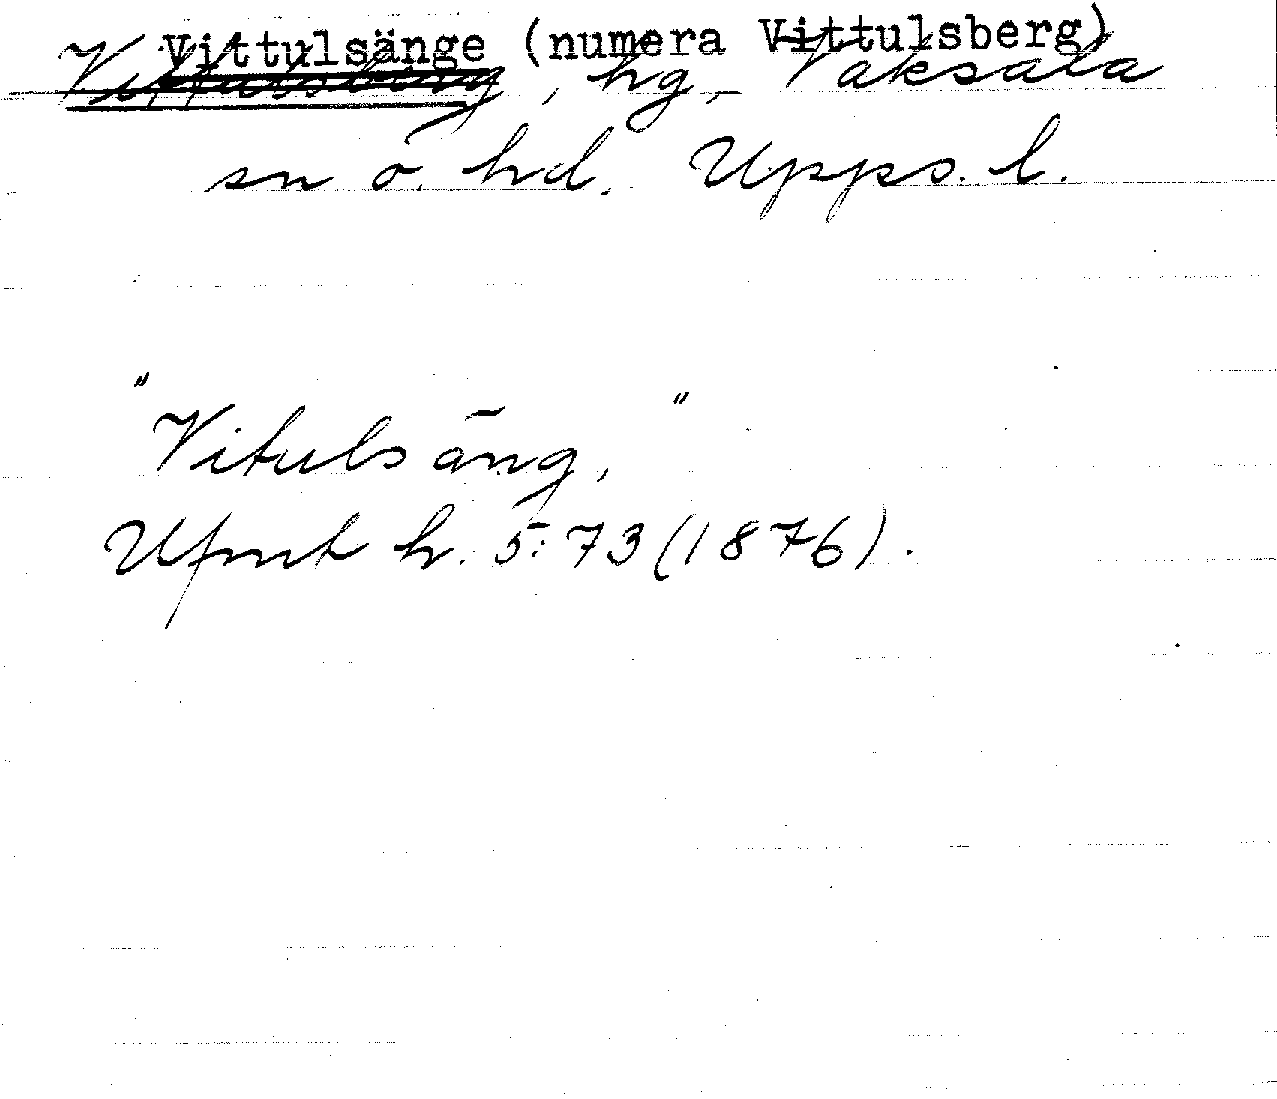 Vittulsänge (numera Vittulsberg)
Vittulsberg, hg, Vaksala
sn o. hd. Upps. l.
"Vitulsäng,"
Ufmt h. 5:73 (1876).